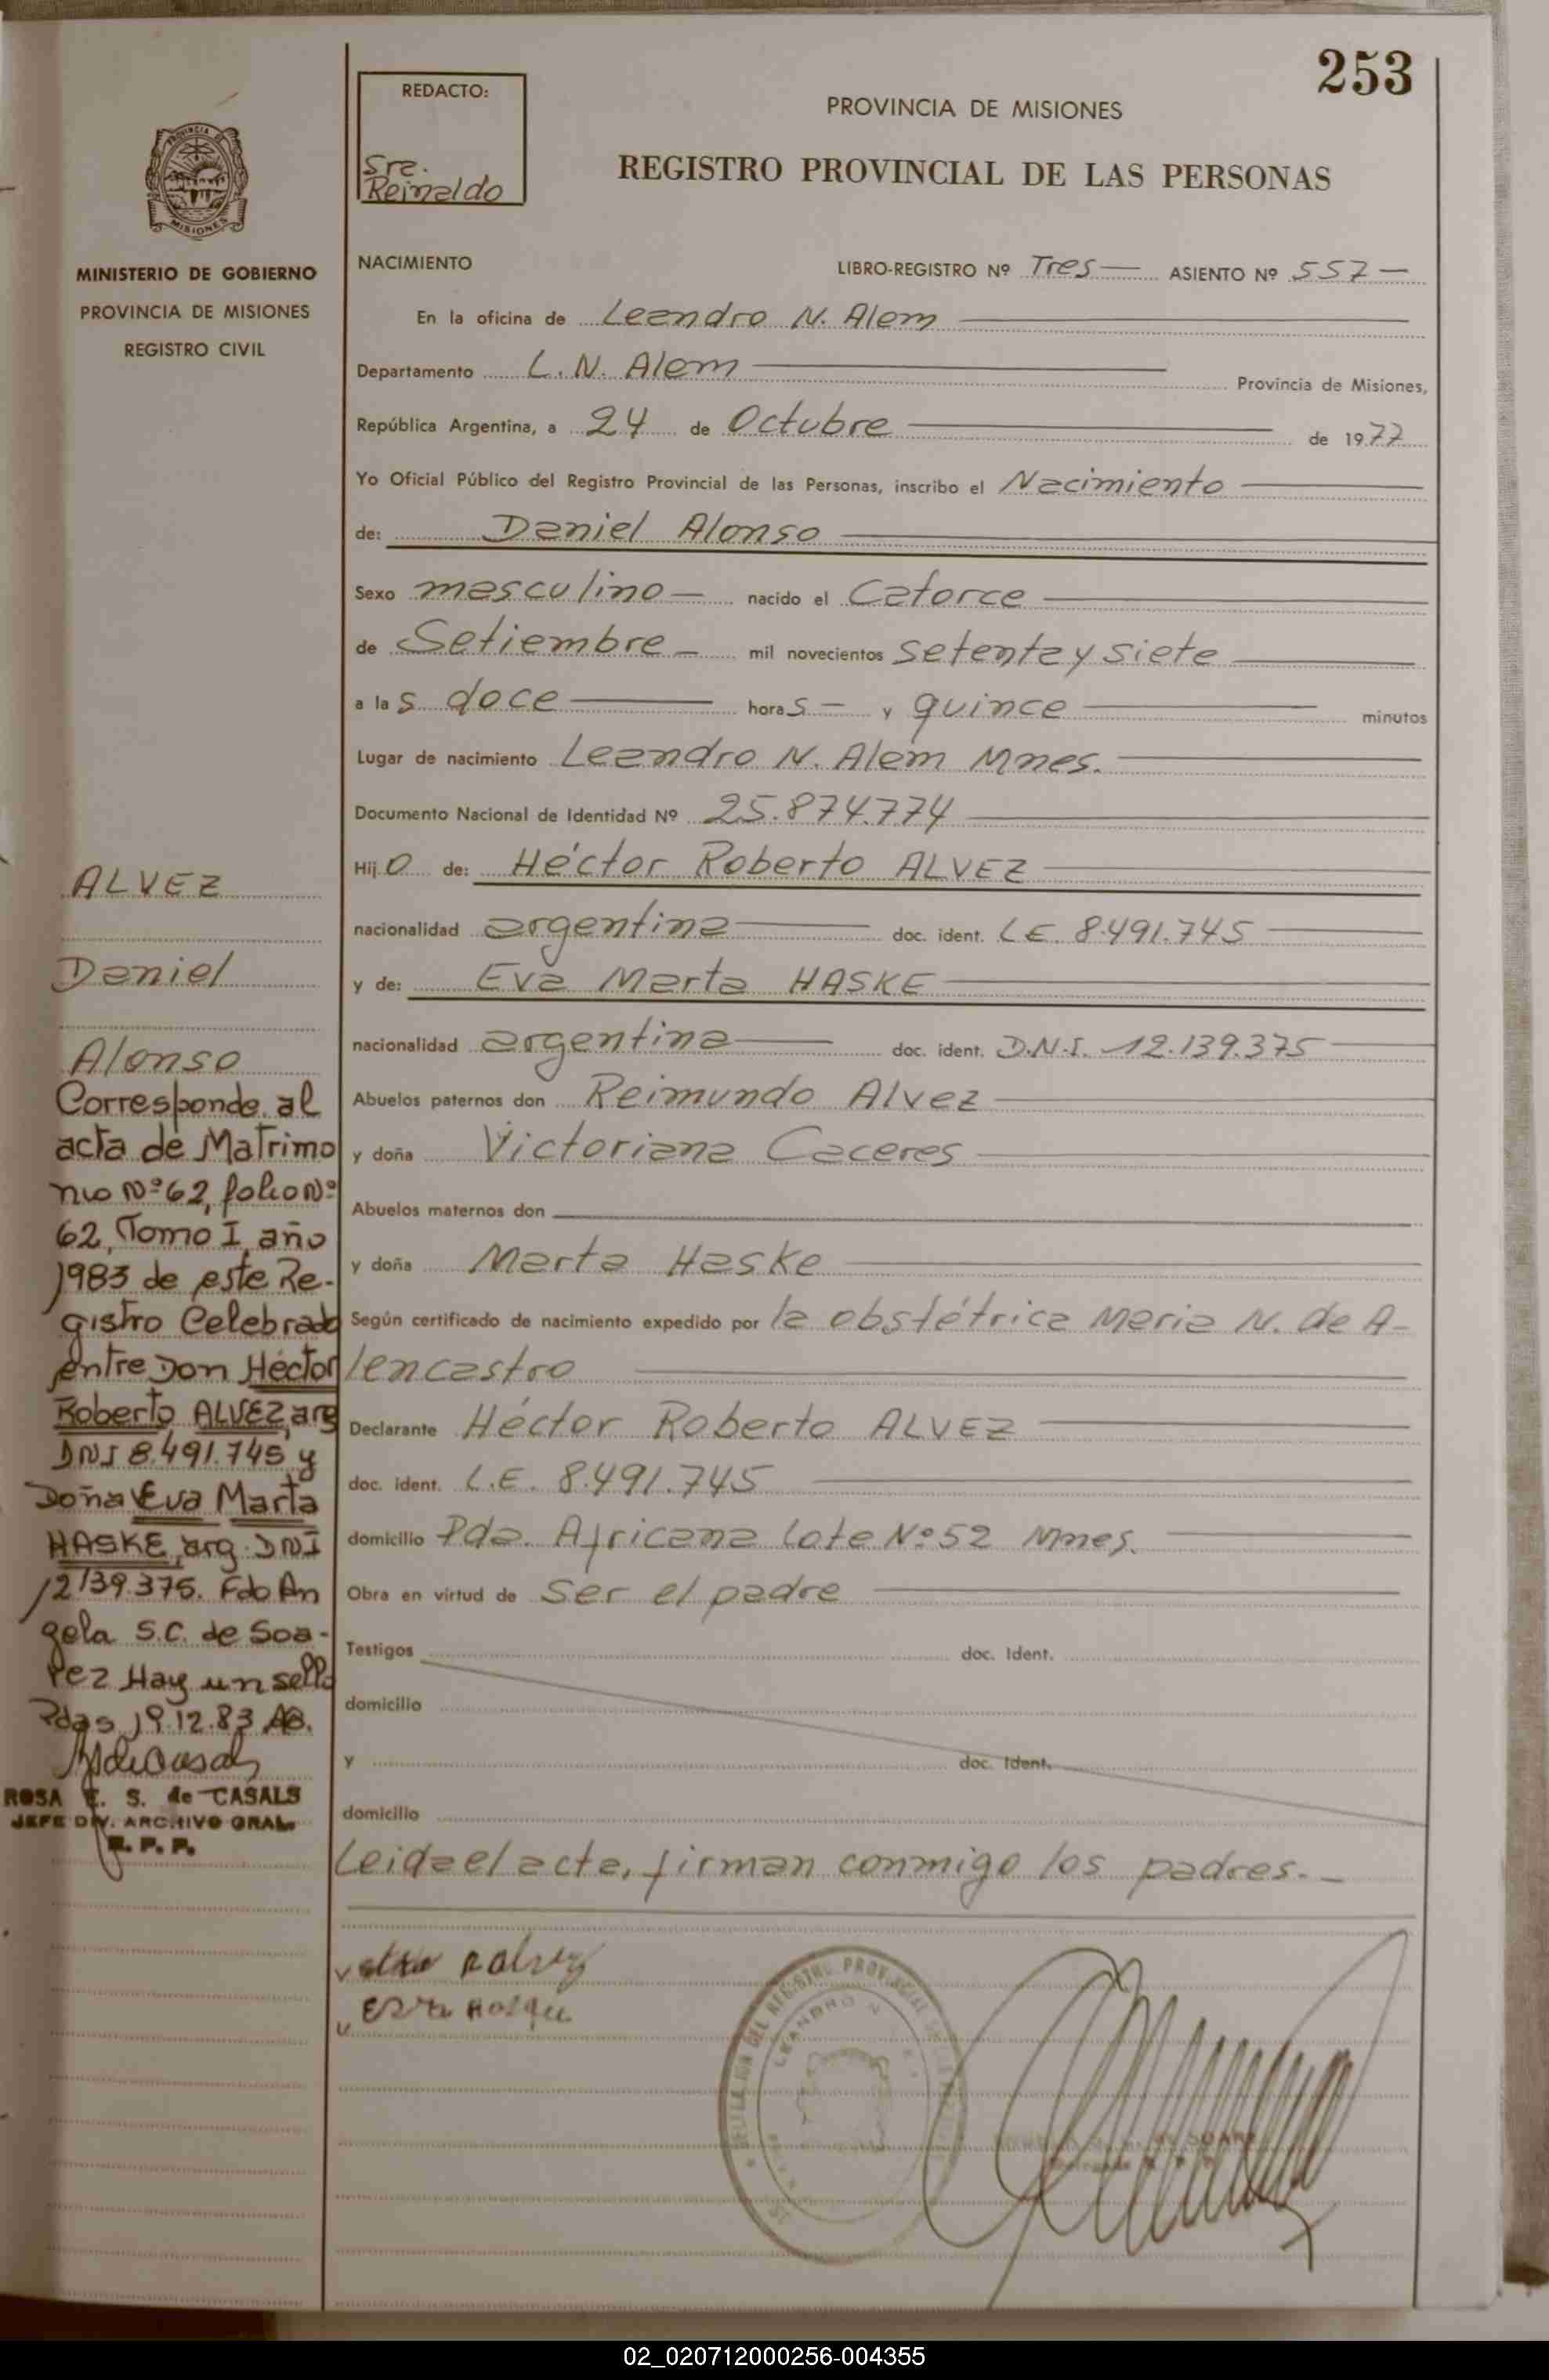 253
REDACTO:
Sre.
Reinaldo
PROVINCIA DE MISIONES
REGISTRO PROVINCIAL DE LAS PERSONAS
PROVINCIA DE
MISIONES
MINISTERIO DE GOBIERNO
PROVINCIA DE MISIONES
REGISTRO CIVIL
NACIMIENTO LIBRO-REGISTRO Nº Tres ASIENTO Nº 557
En la oficina de Leandro N. Alem
Departamento L.N. Alem Provincia de Misiones,
República Argentina, a 24 de Octubre de 1977
Yo Oficial Público del Registro Provincial de las Personas, inscribo el Nacimiento
de: Daniel Alonso
Sexo masculino nacido el Catorce
de Setiembre mil novecientos setenta y siete
a las doce horas y quince minutos
Lugar de nacimiento Leandro N. Alem Mnes.
Documento Nacional de Identidad Nº 25.874.774
Hijo de: Héctor Roberto ALVEZ
nacionalidad argentina doc. ident. L.E. 8.491.745
y de: Eva Marta HASKE
nacionalidad argentina doc. ident. D.N.I. 12.139.375
Abuelos paternos don Reimundo Alvez
y doña Victoriana Caceres
Abuelos maternos don
y doña Marta Haske
Según certificado de nacimiento expedido por la obstétrica Maria N. de A-
lencastro
Declarante Héctor Roberto ALVEZ
doc. ident. L.E. 8.491.745
domicilio Pda. Africana Lote Nº 52 Mnes.
Obra en virtud de Ser el padre
Testigos doc. Ident.
domicilio
y doc. Ident.
domicilio
Leida el acta, firman conmigo los padres.-
ALVEZ
Daniel
Alonso
Corresponde al
acta de Matrimo
nio Nº 62, folio Nº
62, Tomo I, año
1983 de este Re-
gistro Celebrado
entre Don Héctor
Roberto ALVEZ, arg
DNI 8.491.745 y
Doña Eva Marta
HASKE, arg. DNI
12139.375. Fdo An
gela S.C. de Soa-
rez Hay un sello
Pdas 19.12.83 AB.
ROSA E. S. de CASALS
JEFE DIV. ARCHIVO GRAL.
R. P. P.
DEL REGISTRO PROVINCIAL
LEANDRO N.
02_020712000256-004355